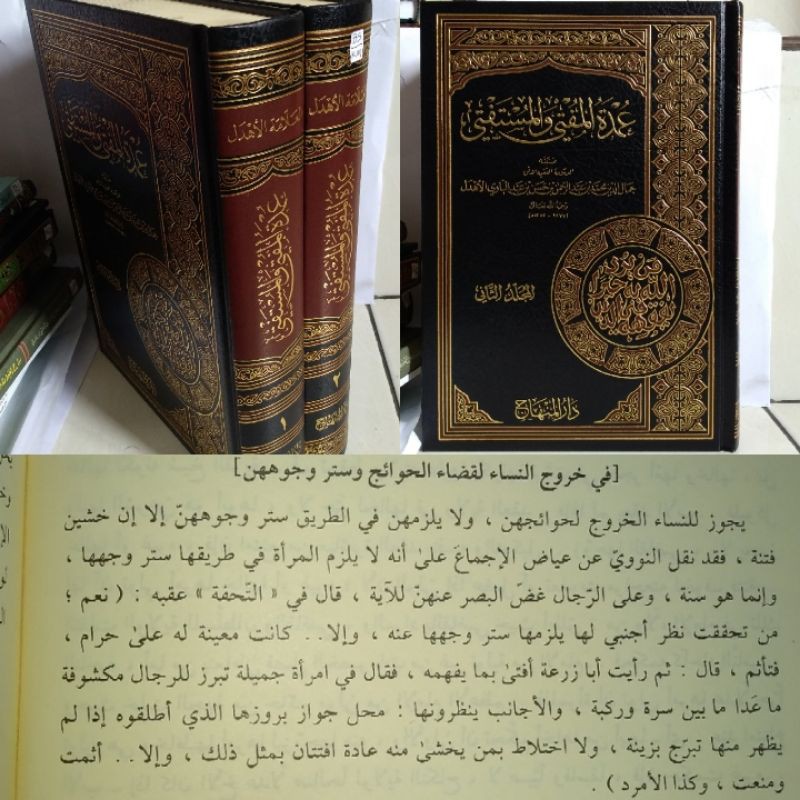 العلامة الأهدل
عمدة المفتي والمستفتي
١
العلامة الأهدل
عمدة المفتي والمستفتي
٢
عمدة المفتي والمستفتي
جمال الدين محمد بن عبد الرحمن بن حسن بن عبد الباري الأهدل
رحمه الله تعالى
المجلد الثاني
دار المنهاج
[في خروج النساء لقضاء الحوائج وستر وجوههن]
يجوز للنساء الخروج لحوائجهن ، ولا يلزمهن في الطريق ستر وجوههنّ إلا إن خشين
فتنة ، فقد نقل النوويّ عن عياض الإجماعَ علىٰ أنه لا يلزم المرأة في طريقها ستر وجهها ،
وإنما هو سنة ، وعلى الرّجال غضّ البصر عنهنّ للآية ، قال في « التّحفة » عقبه : ( نعم ؛
من تحققت نظر أجنبي لها يلزمها ستر وجهها عنه ، وإلا.. كانت معينة له علىٰ حرام ،
فتأثم ، قال : ثم رأيت أبا زرعة أفتىٰ بما يفهمه ، فقال في امرأة جميلة تبرز للرجال مكشوفة
ما عَدا ما بين سرة وركبة ، والأجانب ينظرونها : محل جواز بروزها الذي أطلقوه إذا لم
يظهر منها تبرّج بزينة ، ولا اختلاط بمن يخشىٰ منه عادة افتتان بمثل ذلك ، وإلا.. أثمت
ومنعت ، وكذا الأمرد ) .